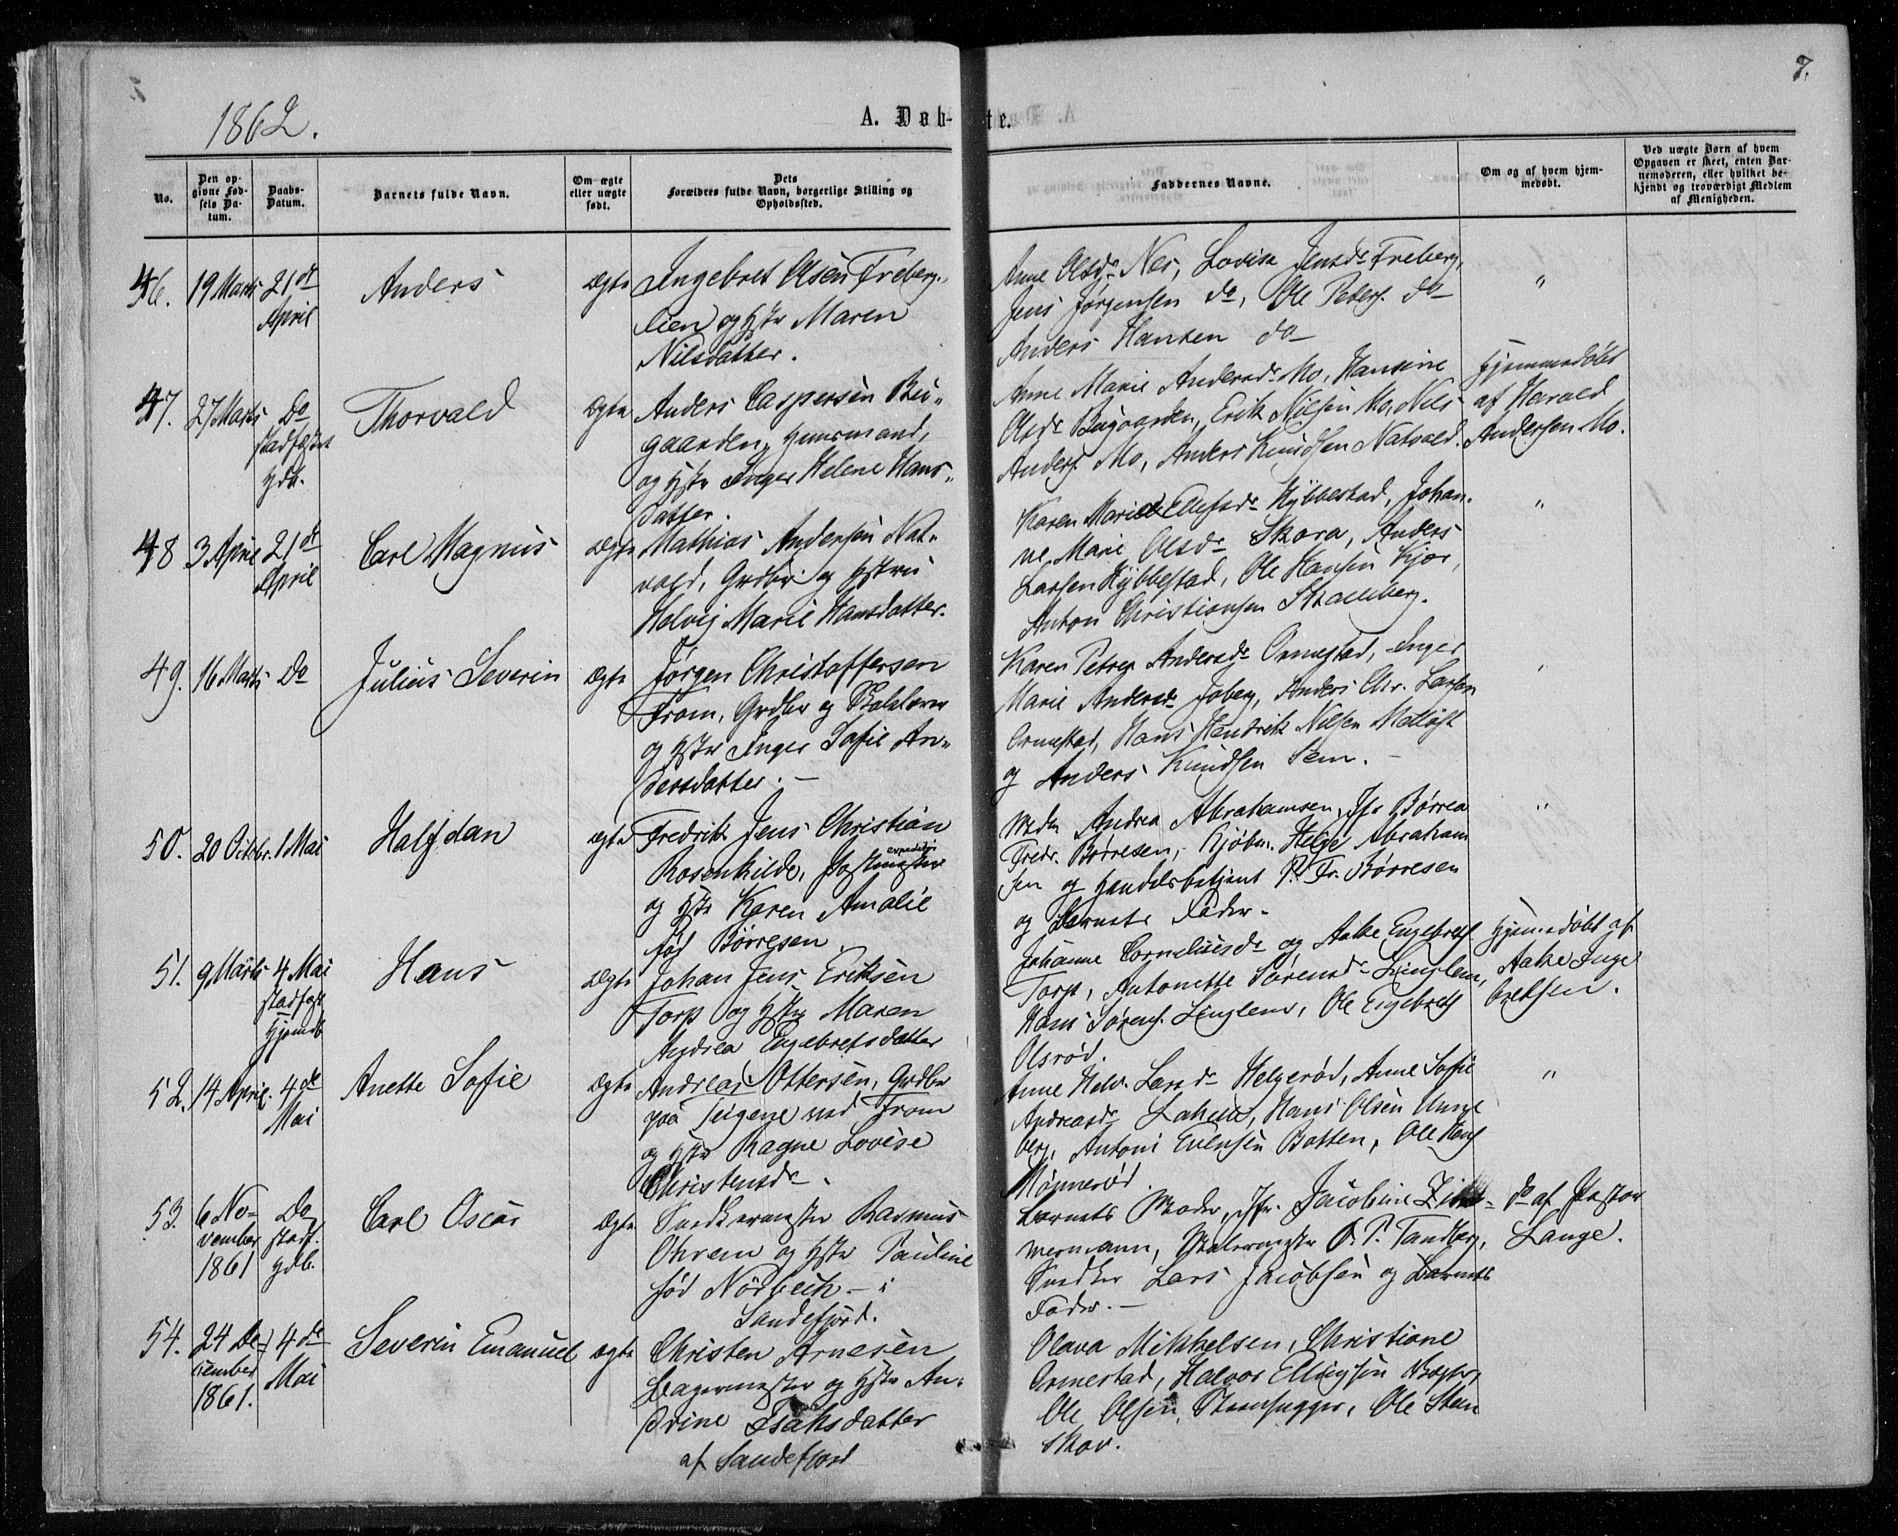 1862.
A. Døb-
te.
7.
No.
Den op-
givne Fød-
sels Da-
tum.
Daabs-
Datum.
Barnets fulde Navn.
Om ægte
eller uægte
født.
Dets
Forældres fulde Navn, borgerlige Stilling og
Opholdssted.
Faddernes Navne.
Om og af hvem hjem-
medøbt.
Ved uægte Børn af hvem
Opgaven er skeet, enten Bar-
nemoderen, eller hvilket be-
kjendt og troværdigt Medlem
af Menigheden.
46. 19 Marts 21de
April
Anders
ægte
Ingebret Olsen Freberg-
lien og Hstr Maren
Nilsdatter.
Anne Olsdr Nes, Lovise Jensdr Freberg,
Jens Jørgensen do, Ole Peders. do
Anders Hansen do
"
47. 27 Marts Do
stadfæstet
Thorvald
ægte
Anders Caspersen Bu-
gaarden, Huusmand,
og Hstr Inger Helene Hans-
datter.
Anne Marie Andersdr Mo, Hansine
Olsdr Bugaarden, Erik Nilsen Mo, Nils
Anders. Mo, Anders Knudsen Natvald.
Hjemmedøbt
af Harald
Andersen Mo.
48 3 April 21de
April
Carl Magnus
ægte
Mathias Andersen Nat-
vald, Grdbr og Hstru
Helvig Marie Hansdatter.
Karen Marie Ellefsdr Hybbestad, Johan-
ne Marie Olsdr Skora, Anders
Larsen Hybbestad, Ole Hansen Kjær,
Anton Christiansen
"
49. 16 Marts Do
Julius Severin
ægte
Jørgen Christoffersen
Fram, Grdbr og Skolelærer
og Hstr Inger Sofie An-
dersdatter. –
Karen Petrea Andersdr Ormestad, Inger
Marie Andersdr Joberg, Anders Chr. Larsen
Ormestad, Hans Hendrik Nilsen
og Anders Knudsen Sem. –
50. 20 Octobr. 1 Mai
Halfdan
ægte
Fredrik Jens Christian
Rosenkilde, Postmester
og Hstr Karen Amalie
fød Børresen.
Mdm Andrea Abrahamsen, Jfr Børrea
Fredr. Børresen, Kjøbm. Helge Abraham
sen og Handelsbetjent P. Fr. Børresen
og Barnets Fader.
"
51. 9 Marts 4 Mai
stadfæst
Hjemdb
Hans
ægte
Johan Jens Eriksen
Torp og Hstr Maren
Andrea Engebretsdatter
Johanne Corneliusdr og Aake Engebrets
Torp, Antonette Sørensdr Linglem,
Hans Sørens. Linglem, Ole Engebrets
Olsrød.
Hjemmedøbt af
Aake Inge
bretsen.
52. 14 April. 4de
Mai
Anette Sofie
ægte
Andreas Ottersen, Grdbr
paa Teigene ved Fram
og Hstr Ragne Lovise
Christensdr.
Anne Helv. Larsdr Helgerød, Anne Sofie
Andreasdr Hans Olsen Unne
berg, Antoni Evensen Botten, Ole Hans
"
53. 6 No-
vember
1861
Do
stadf.
Carl Oscar
ægte
Snedkermester Rasmus
Ohrem og Hstr Pauline
fød Nörbech – i
Sandefjord.
Barnets Moder, Jfr. Jacobine Zim-
mermann, Malermester O. P. Tandberg,
Snedker Lars Jacobsen og Barnets
Fader. –
do af Pastor
Lange.
54. 24 De-
cember
1861.
4de
Mai
Severin Emanuel
ægte
Christen Arnesen
Bagermester og Hstr An-
drine Isaksdatter
af Sandefjord
Olava Mikkelsen, Christiane
Ormestad, Halvor Ellingsen
Ole Olsen, Steenhugger, Ole Sten
skov.